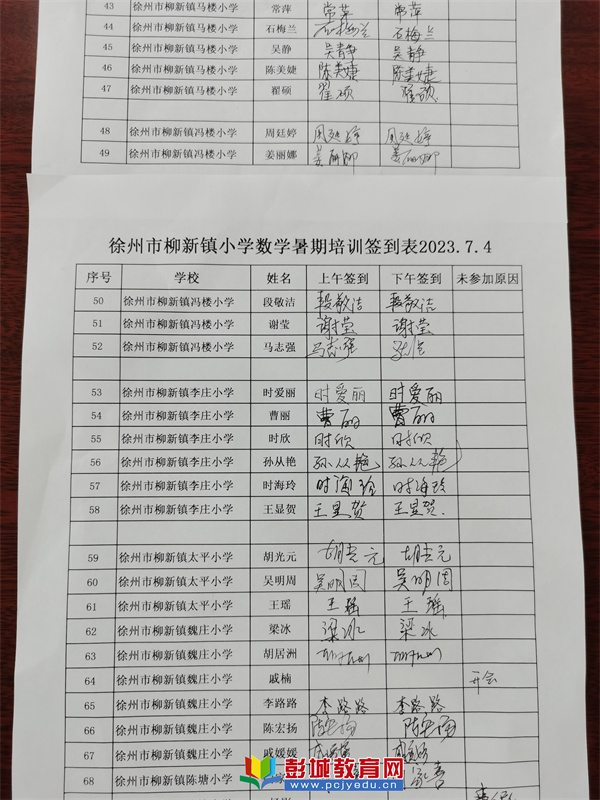 43 徐州市柳新镇马楼小学 常萍 常萍 常萍
44 徐州市柳新镇马楼小学 石梅兰 石梅兰 石梅兰
45 徐州市柳新镇马楼小学 吴静 吴青静 吴静
46 徐州市柳新镇马楼小学 陈美婕 陈美婕 陈美婕
47 徐州市柳新镇马楼小学 翟硕 翟硕 翟硕
48 徐州市柳新镇冯楼小学 周廷婷 周廷婷 周廷婷
49 徐州市柳新镇冯楼小学 姜丽娜 姜丽娜 姜丽娜
徐州市柳新镇小学数学暑期培训签到表2023.7.4
序号 学校 姓名 上午签到 下午签到 未参加原因
50 徐州市柳新镇冯楼小学 段敬洁 段敬洁 段敬洁
51 徐州市柳新镇冯楼小学 谢莹 谢莹 谢莹
52 徐州市柳新镇冯楼小学 马志强 马志强
53 徐州市柳新镇李庄小学 时爱丽 时爱丽 时爱丽
54 徐州市柳新镇李庄小学 曹丽 曹丽 曹丽
55 徐州市柳新镇李庄小学 时欣 时欣 时欣
56 徐州市柳新镇李庄小学 孙从艳 孙从艳 孙从艳
57 徐州市柳新镇李庄小学 时海玲 时海玲 时海玲
58 徐州市柳新镇李庄小学 王显贺 王显贺 王显贺
59 徐州市柳新镇太平小学 胡光元 胡光元 胡光元
60 徐州市柳新镇太平小学 吴明周 吴明周 吴明周
61 徐州市柳新镇太平小学 王瑶 王瑶 王瑶
62 徐州市柳新镇魏庄小学 梁冰 梁冰 梁冰
63 徐州市柳新镇魏庄小学 胡居洲 胡居洲 胡居洲
64 徐州市柳新镇魏庄小学 戚楠 开会
65 徐州市柳新镇魏庄小学 李路路 李路路 李路路
66 徐州市柳新镇魏庄小学 陈宏扬 陈宏扬 陈宏扬
67 徐州市柳新镇魏庄小学 戚媛媛
68 徐州市柳新镇陈塘小学
彭城教育网
www.pcjyedu.cn